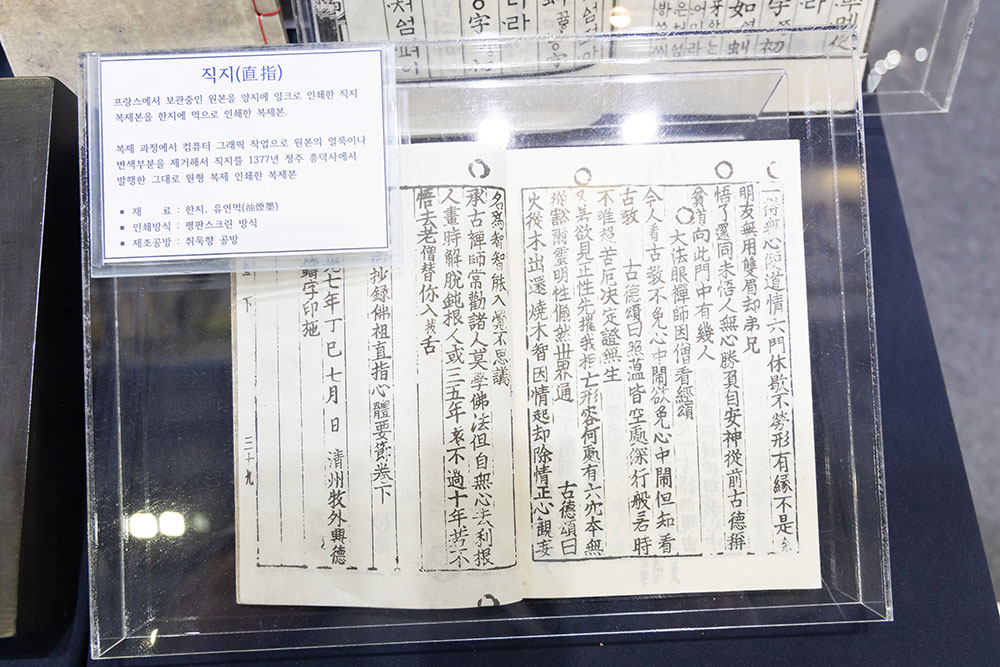 직지(直指)
프랑스에서 보관중인 원본을 양지에 잉크로 인쇄한 직지
복제본을 한지에 먹으로 인쇄한 복제본.
복제 과정에서 컴퓨터 그래픽 작업으로 원본의 얼룩이나
변색부분을 제거해서 직지를 1377년 청주 흥덕사에서
발행한 그대로 원형 복제 인쇄한 복제본
▪ 재 료 : 한지, 유연먹(油煙墨)
▪ 인쇄방식 : 평판스크린 방식
▪ 제조공방 : 취묵향 공방
一得無心便道情六門休歇不勞形有緣不是
明友無用雙眉却弟兄
悟了還同未悟人無心勝負自安神從前古德
貧道向此門中有幾人
大法眼禪師因僧看經頌
今人看古教不免心中鬧欲免心中鬧但知看
古教 古德頌曰照薀皆空處深行般若時
不唯招苦厄決定證無生
其欲見正性先摧我相亡形容何處有六宂本無
從豁爾靈明性偹然世界通 古德頌曰
火從木出還燒木智因情起却除情正心觀妄
名爲智智能入不思議
承古禪師常勸諸人莫學佛法但自無心去利根
人畫時解脫鈍根人或三五年不過十年若不
悟去老僧替你入舌
抄錄佛祖直指心體要節卷下
七年丁巳七月 日 清州牧外興德
鑄字印施
下
三十九